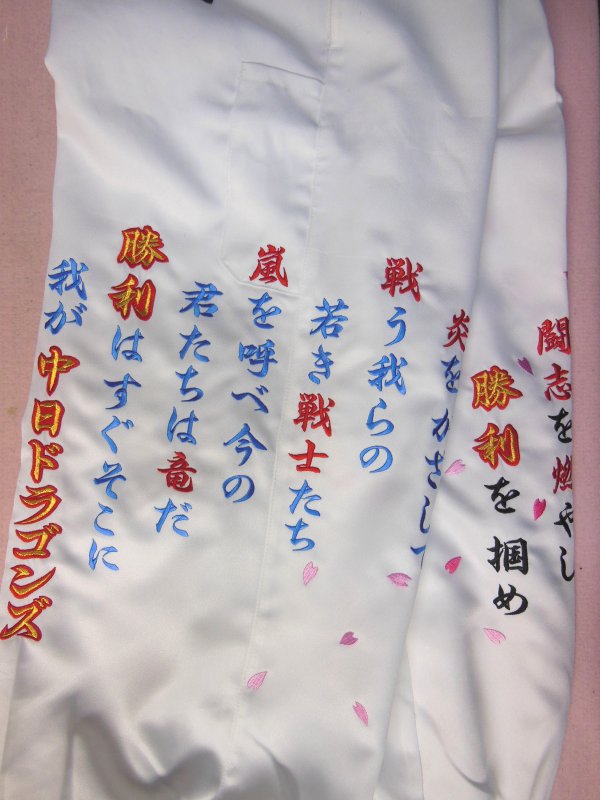 闘志を燃やし
勝利を掴め
炎をかざして
戦う我らの
若き戦士たち
嵐を呼べ今の
君たちは竜だ
勝利はすぐそこに
我が中日ドラゴンズ